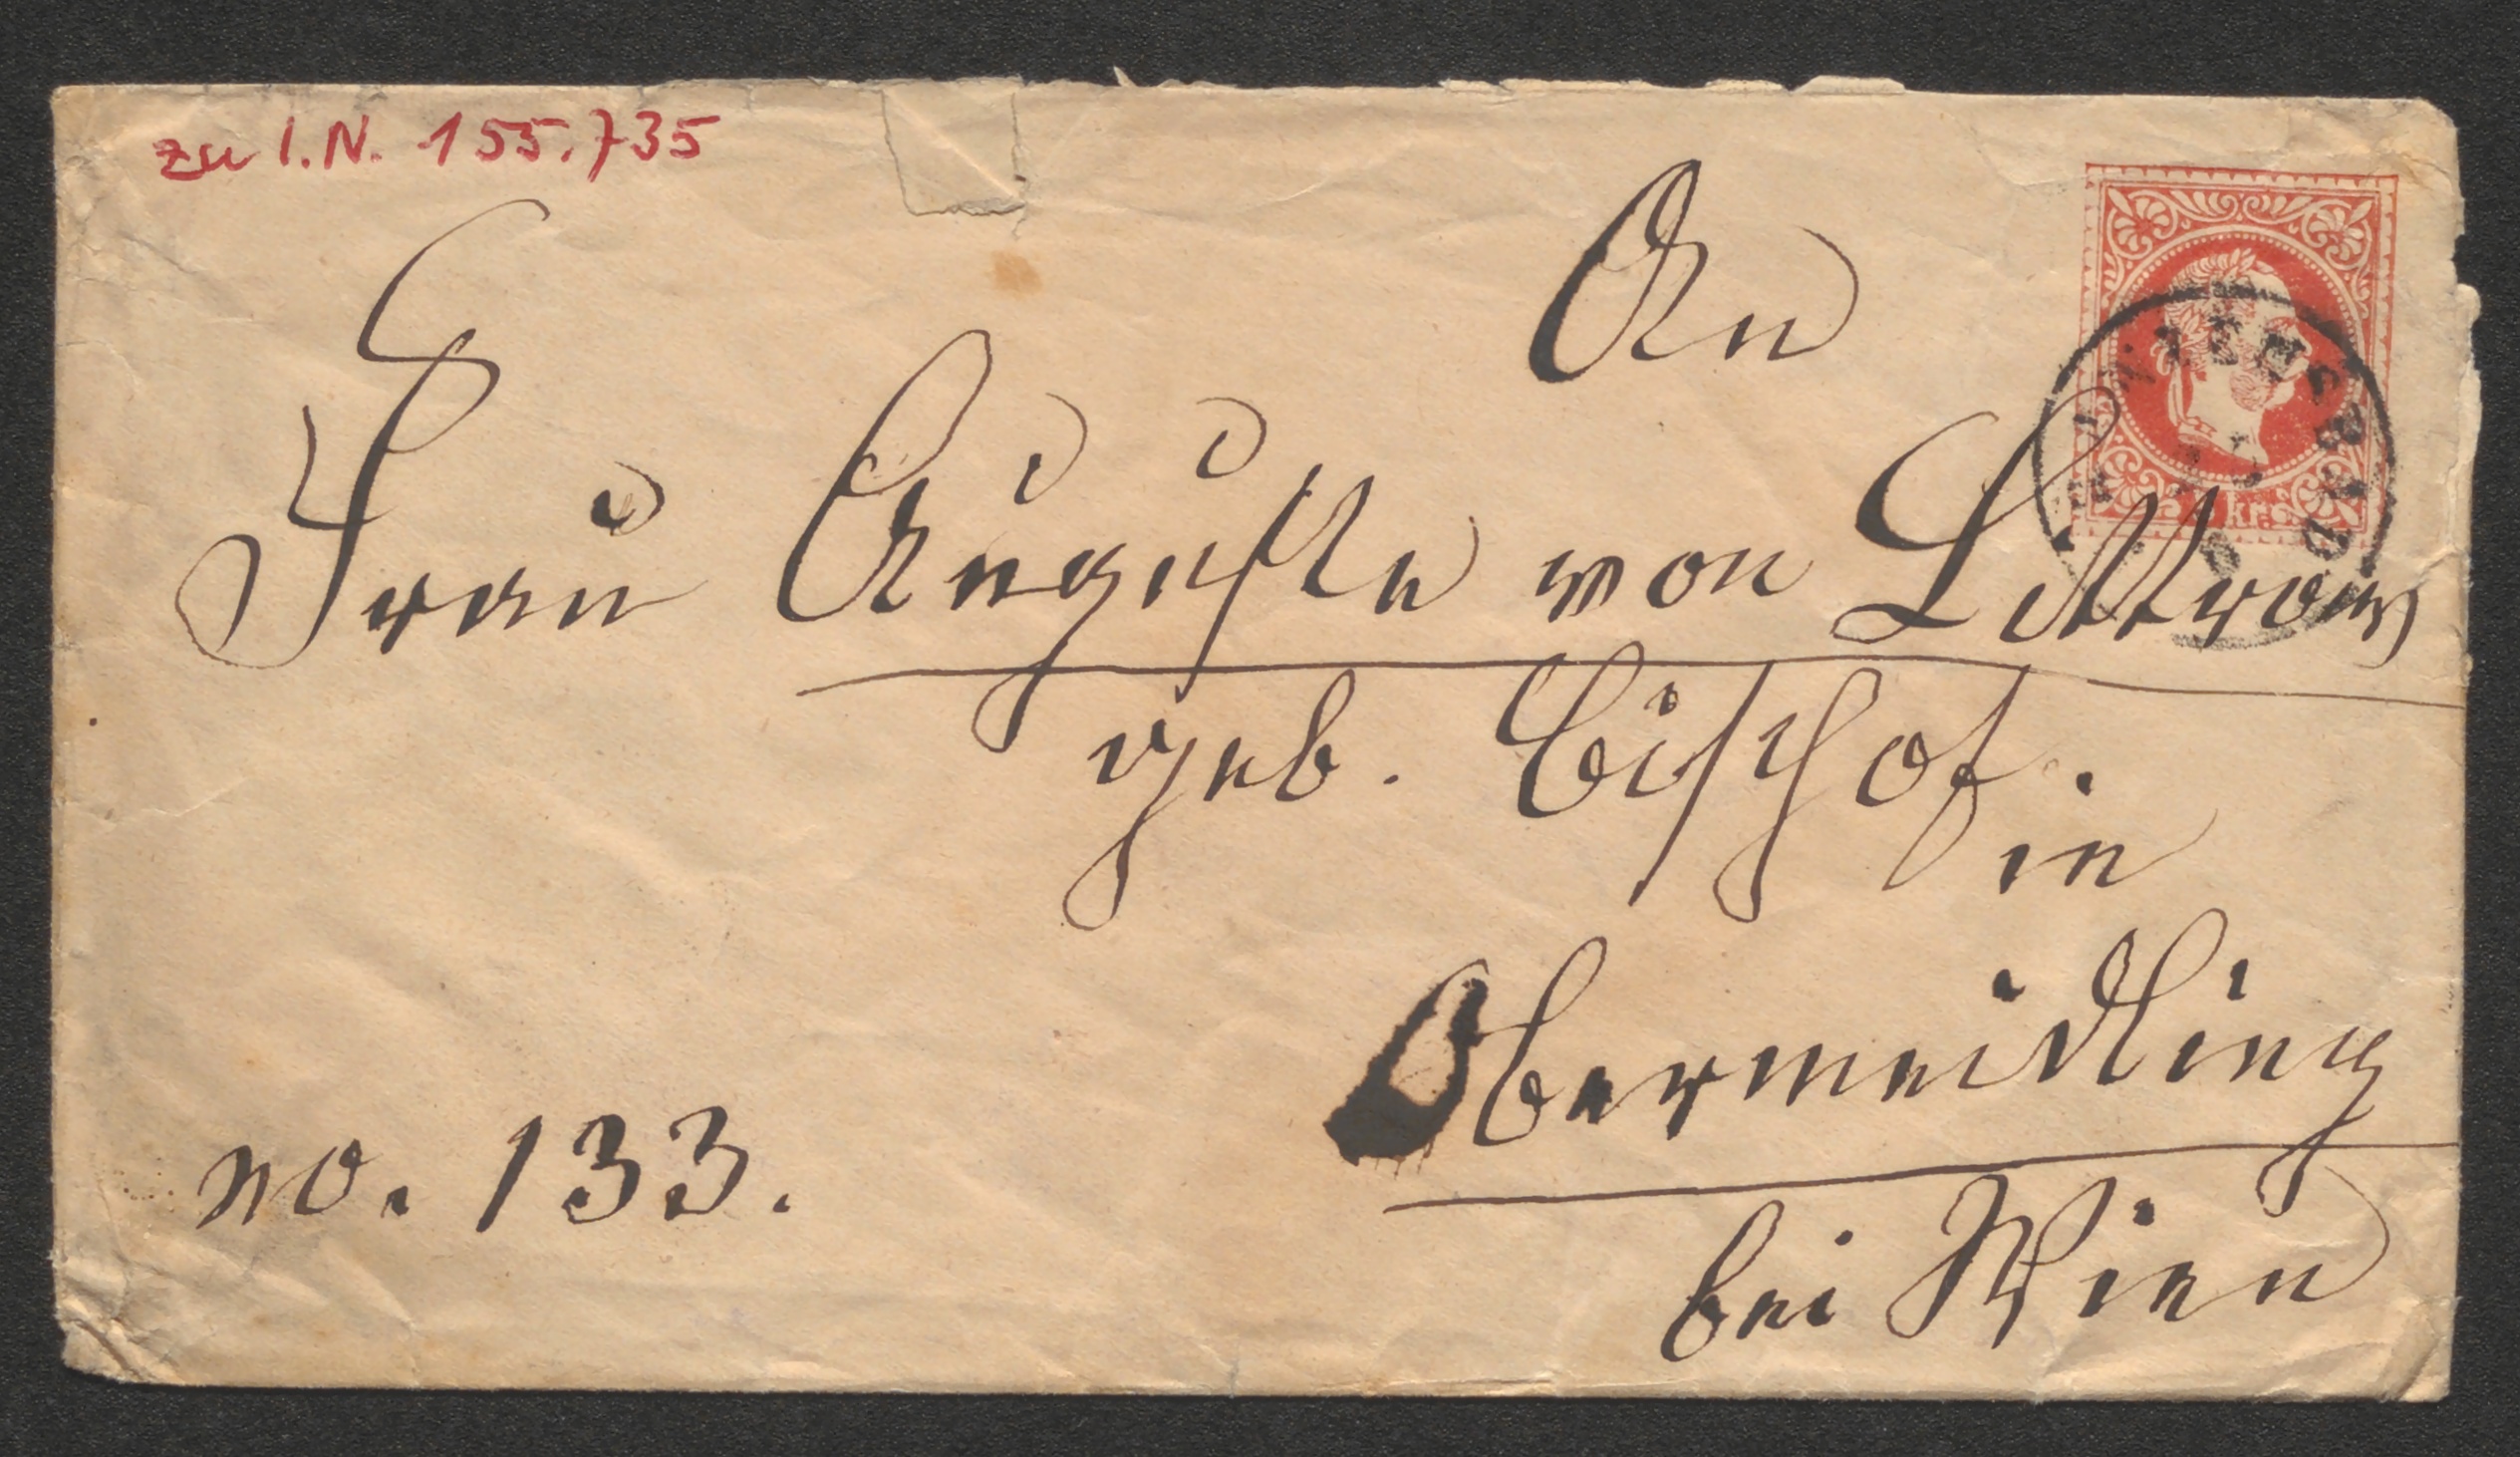 zu I.N. 155.735
An
Frau Auguste von Littrow
geb. Bischof.
in
Obermeidling
no. 133.
bei Wien
kr.